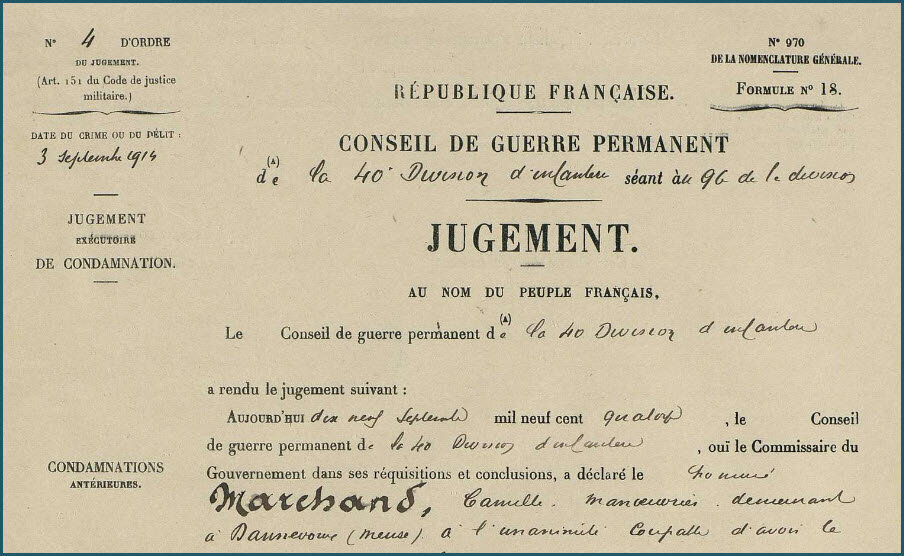 N° 4 D'ORDRE
DU JUGEMENT.
(Art. 151 du Code de justice
militaire.)
DATE DU CRIME OU DU DÉLIT :
3 Septembre 1914
JUGEMENT
EXÉCUTOIRE
DE CONDAMNATION.
CONDAMNATIONS
ANTÉRIEURES.
N° 970
DE LA NOMENCLATURE GÉNÉRALE.
FORMULE N° 18.
RÉPUBLIQUE FRANÇAISE.
CONSEIL DE GUERRE PERMANENT
(A)
de la 40e Division d'infanterie séant au QG de la division
JUGEMENT.
AU NOM DU PEUPLE FRANÇAIS,
(A)
Le Conseil de guerre permanent de la 40 Division d'infanterie
a rendu le jugement suivant :
AUJOURD'HUI dix neuf Septembre mil neuf cent quatorze, le Conseil
de guerre permanent de la 40 Division d'infanterie, ouï le Commissaire du
Gouvernement dans ses réquisitions et conclusions, a déclaré le nommé
Marchand, Camille, manoeuvrier demeurant
à Dannevoux (Meuse) à l'unanimité Coupable d'avoir le